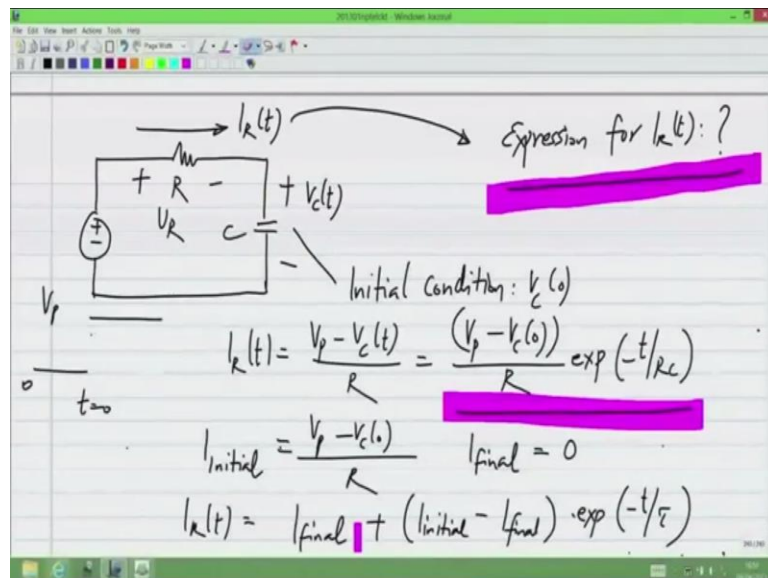 201301nptelckt - Windows Journal
File Edit View Insert Actions Tools Help
Page Width
I_R(t)
Expression for I_R(t): ?
+ R -
V_R
+ V_c(t)
C
-
+
-
Initial Condition: V_c(0)
V_p
0
t=0
I_R(t) = (V_p - V_c(t))/R = (V_p - V_c(0))/R exp(-t/RC)
I_Initial = (V_p - V_c(0))/R I_final = 0
I_R(t) = I_final + (I_initial - I_final) · exp(-t/τ)